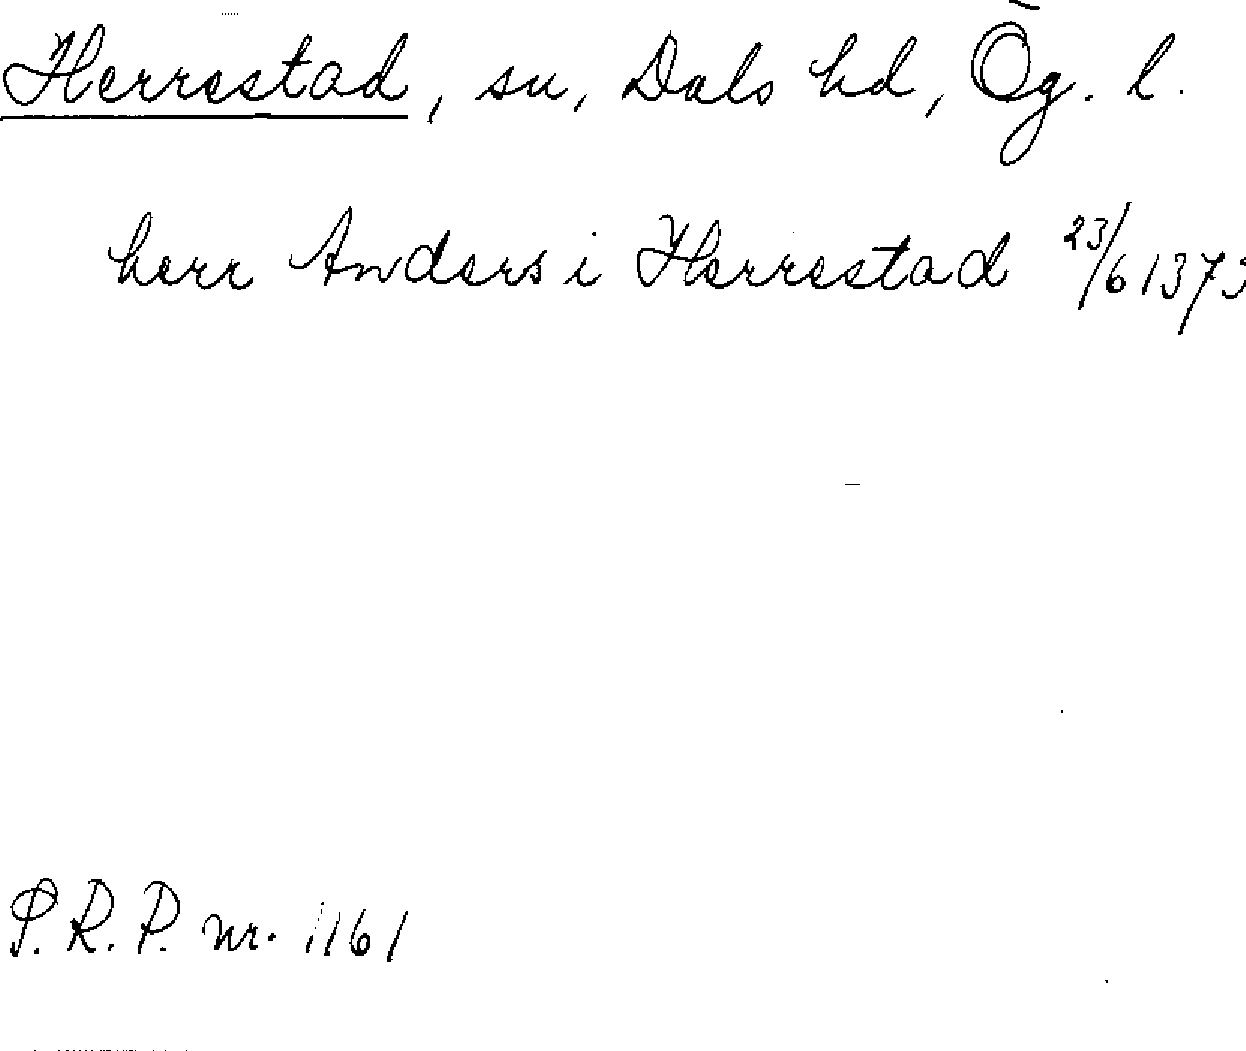 Herrestad, sn, Dals hd, Ög. l.
herr Anders i Herrestad 23/6 1375
P.R.P. nr. 1161